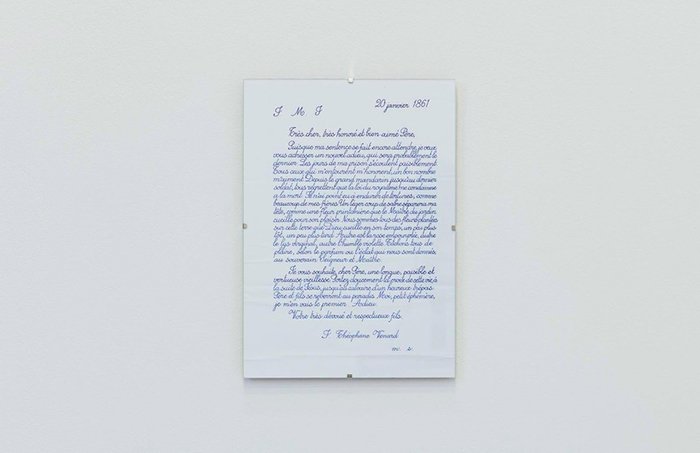 J M J
20 janvier 1861
Très cher, très honoré et bien-aimé Père,
Puisque ma sentence se fait encore attendre, je veux
vous adresser un nouvel adieu, qui sera probablement le
dernier. Les jours de ma prison s'écoulent paisiblement.
Tous ceux qui m'entourent m'honorent, un bon nombre
m'aiment. Depuis le grand mandarin jusqu'au dernier
soldat, tous regrettent que la loi du royaume me condamne
à la mort. Je n'ai point eu à endurer de tortures, comme
beaucoup de mes frères. Un léger coup de sabre séparera ma
tête, comme une fleur printanière que le Maître du jardin
cueille pour son plaisir. Nous sommes tous des fleurs plantées
sur cette terre que Dieu cueille en son temps, un peu plus
tôt, un peu plus tard. Autre est la rose empourprée, autre
le lys virginal, autre l'humble violette. Tâchons tous de
plaire, selon le parfum ou l'éclat qui nous sont donnés,
au souverain Seigneur et Maître.
Je vous souhaite, cher Père, une longue, paisible et
vertueuse vieillesse. Portez doucement la croix de cette vie, à
la suite de Jésus, jusqu'au calvaire d'un heureux trépas.
Père et fils se reverront au paradis. Moi, petit éphémère,
je m'en vais le premier. Adieu.
Votre très dévoué et respectueux fils.
J. Théophane Vénard
m. s.